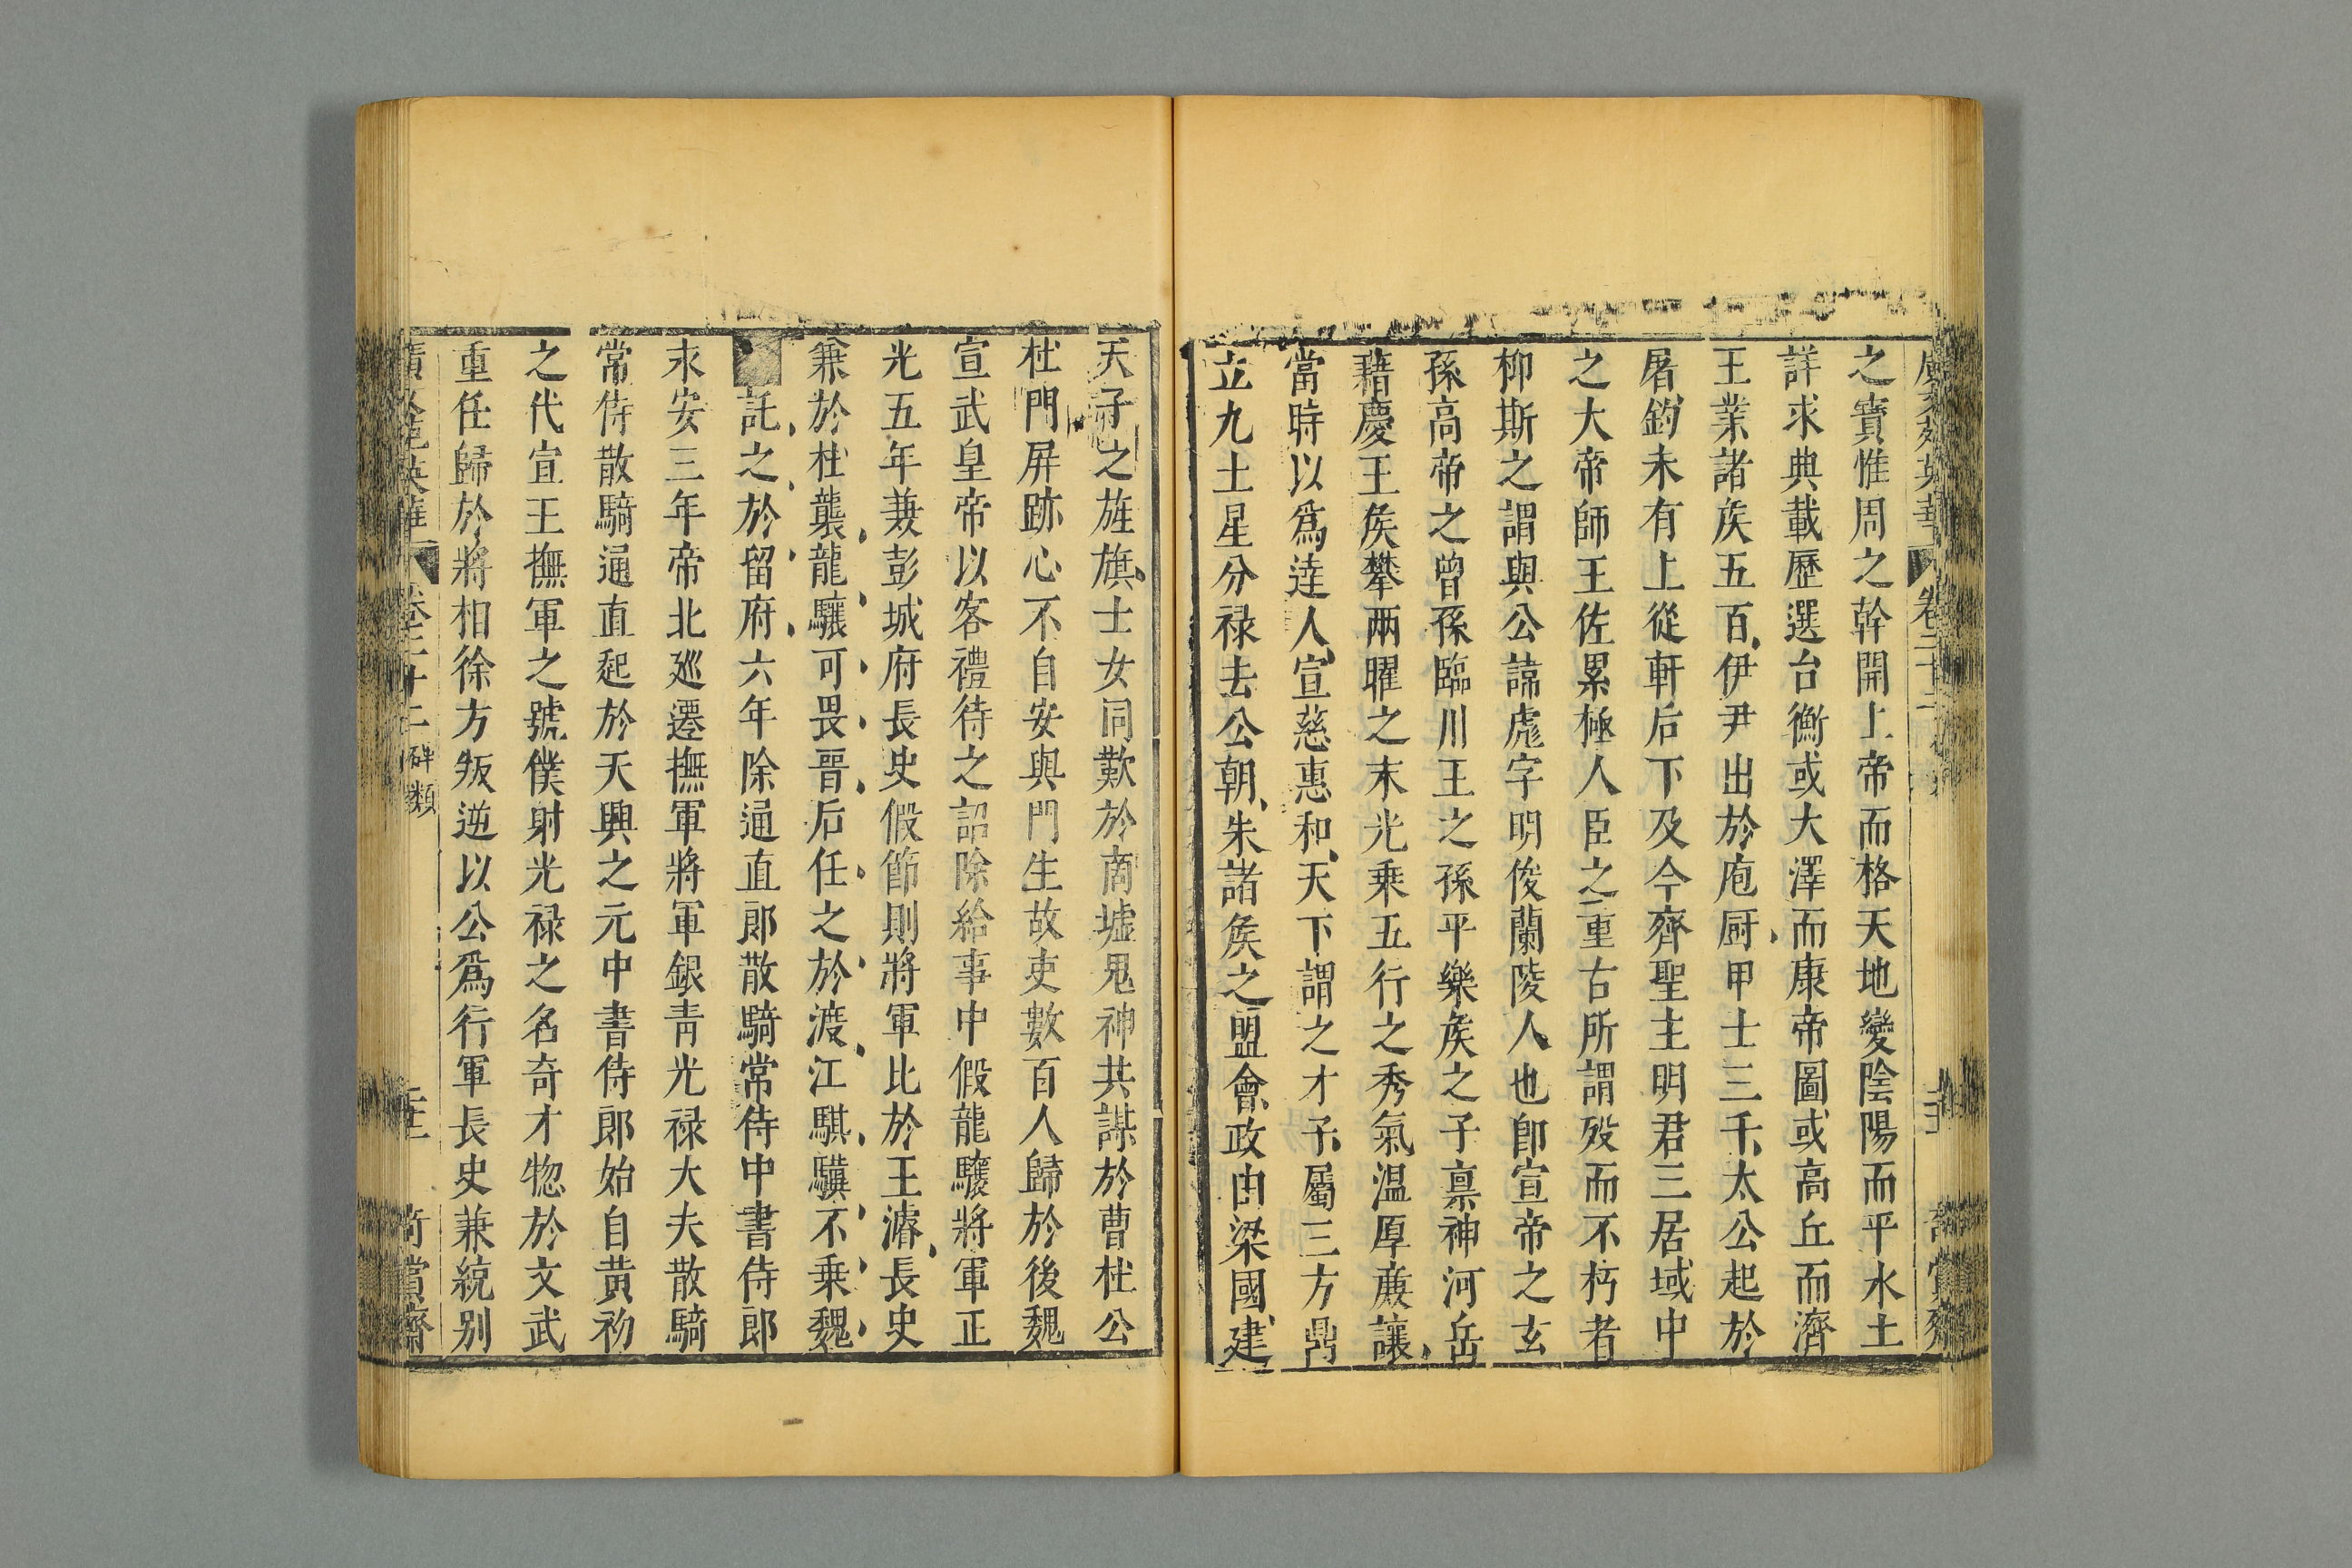 廣文苑英華 卷二十二
之寶惟周之幹開上帝而格天地變陰陽而平水土
詳求典載歷選台衡或大澤而康帝圖或高丘而濟
王業諸侯五百伊尹出於庖厨甲士三千太公起於
屠釣未有上從軒后下及今齊聖主明君三居域中
之大帝師王佐累極人臣之重古所謂殁而不朽者
柳斯之謂與公諱彪字明俊蘭陵人也卽宣帝之玄
孫高帝之曾孫臨川王之孫平樂侯之子禀神河岳
藉慶王侯攀兩曜之末光乘五行之秀氣温厚廉讓
當時以爲達人宣慈惠和天下謂之才子屬三方鼎
立九土星分禄去公朝朱諸侯之盟會政由梁國建
天子之旌旗士女同歎於商墟鬼神共謀於曹杜公
杜門屏跡心不自安與門生故吏數百人歸於後魏
宣武皇帝以客禮待之詔除給事中假龍驤將軍正
光五年兼彭城府長史假節則將軍比於王濬長史
兼於杜襲龍驤可畏晉后任之於渡江騏驥不乗魏
託之於留府六年除通直郎散騎常侍中書侍郎
永安三年帝北廵遷撫軍將軍銀青光禄大夫散騎
常侍散騎通直起於天興之元中書侍郎始自黄初
之代宣王撫軍之號僕射光禄之名奇才惣於文武
重任歸於將相徐方叛逆以公爲行軍長史兼統别
廣文苑英華 卷二十二 碑類